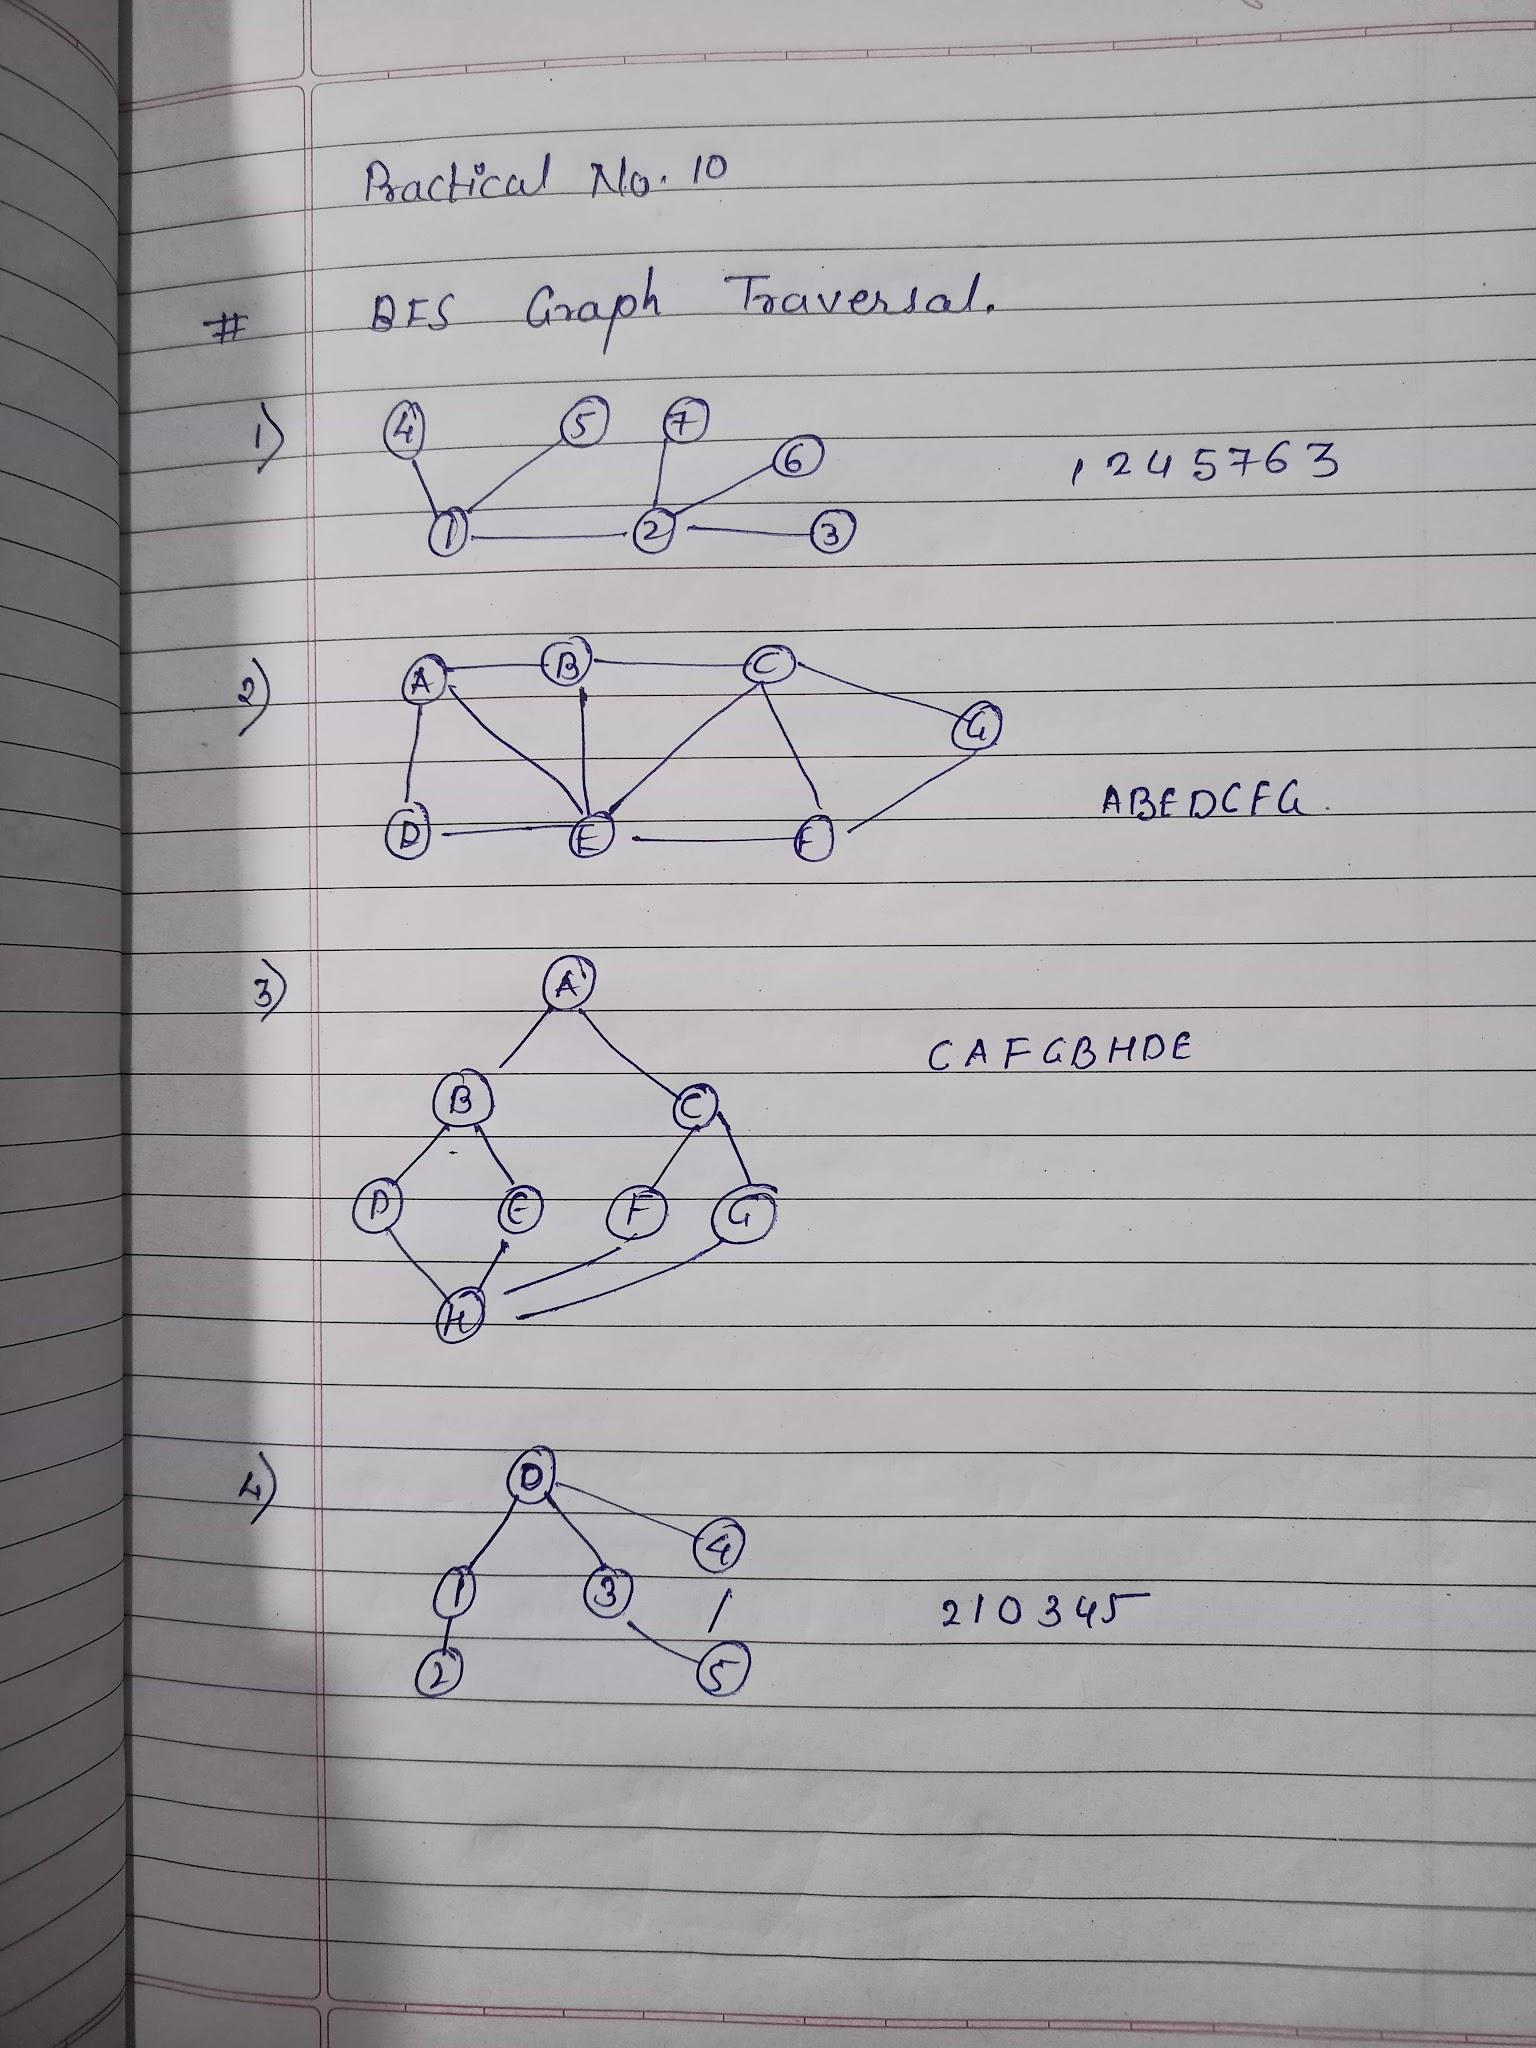 Practical No. 10
# BFS Graph Traversal.
1) 4 5 7 6
1 2 3
1245763
2) A B C G
D E F
ABEDCFG.
3) A
B C
D E F G
H
CAFGBHDE
4) 0
4
1 3
2 5
210345